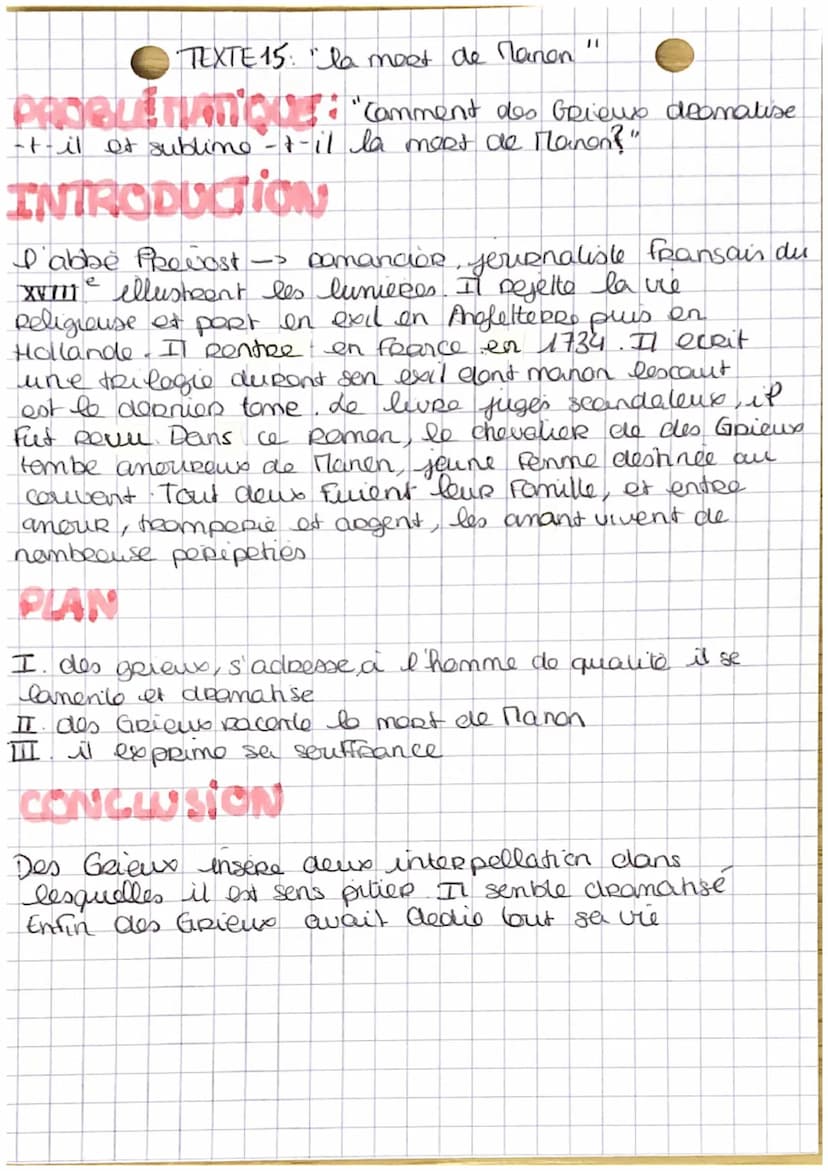 TEXTE 15: "la mort de Manon"
PROBLÉMATIQUE: "Comment des Grieux dramatise
-t-il et sublime -t-il la mort de Manon?"
INTRODUCTION
l'abbé Prévost -> romancier, journaliste fransais du
XVIIIe illustrent les lumières. Il rejette la vie
religieuse et part en exil en Angleterre puis en
Hollande. Il rentre en france en 1734. Il ecrit
une trilogie durant son exil dont manon lescaut
est le dernier tome. Le livre jugés scandaleux, il
fut revu. Dans ce roman, le chevalier de des Grieux
tombe amoureux de Manon, jeune femme destinée au
couvent. Tout deux fuient leur famille, et entre
amour, tromperie et argent, les amant vivent de
nombreuse peripeties
PLAN
I. des grieux, s'adresse à l'homme de qualité il se
lamente et dramatise
II. des Grieux raconte la mort de Manon
III. il exprime sa souffrance
CONCLUSION
Des Grieux insère deux interpellation dans
lesquelles il est sens pitier Il semble dramatisé
Enfin des Grieux avait dedié tout sa vie